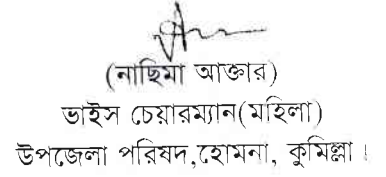 (নাছিমা আক্তার)
ভাইস চেয়ারম্যান(মহিলা)
উপজেলা পরিষদ,হোমনা, কুমিল্লা।